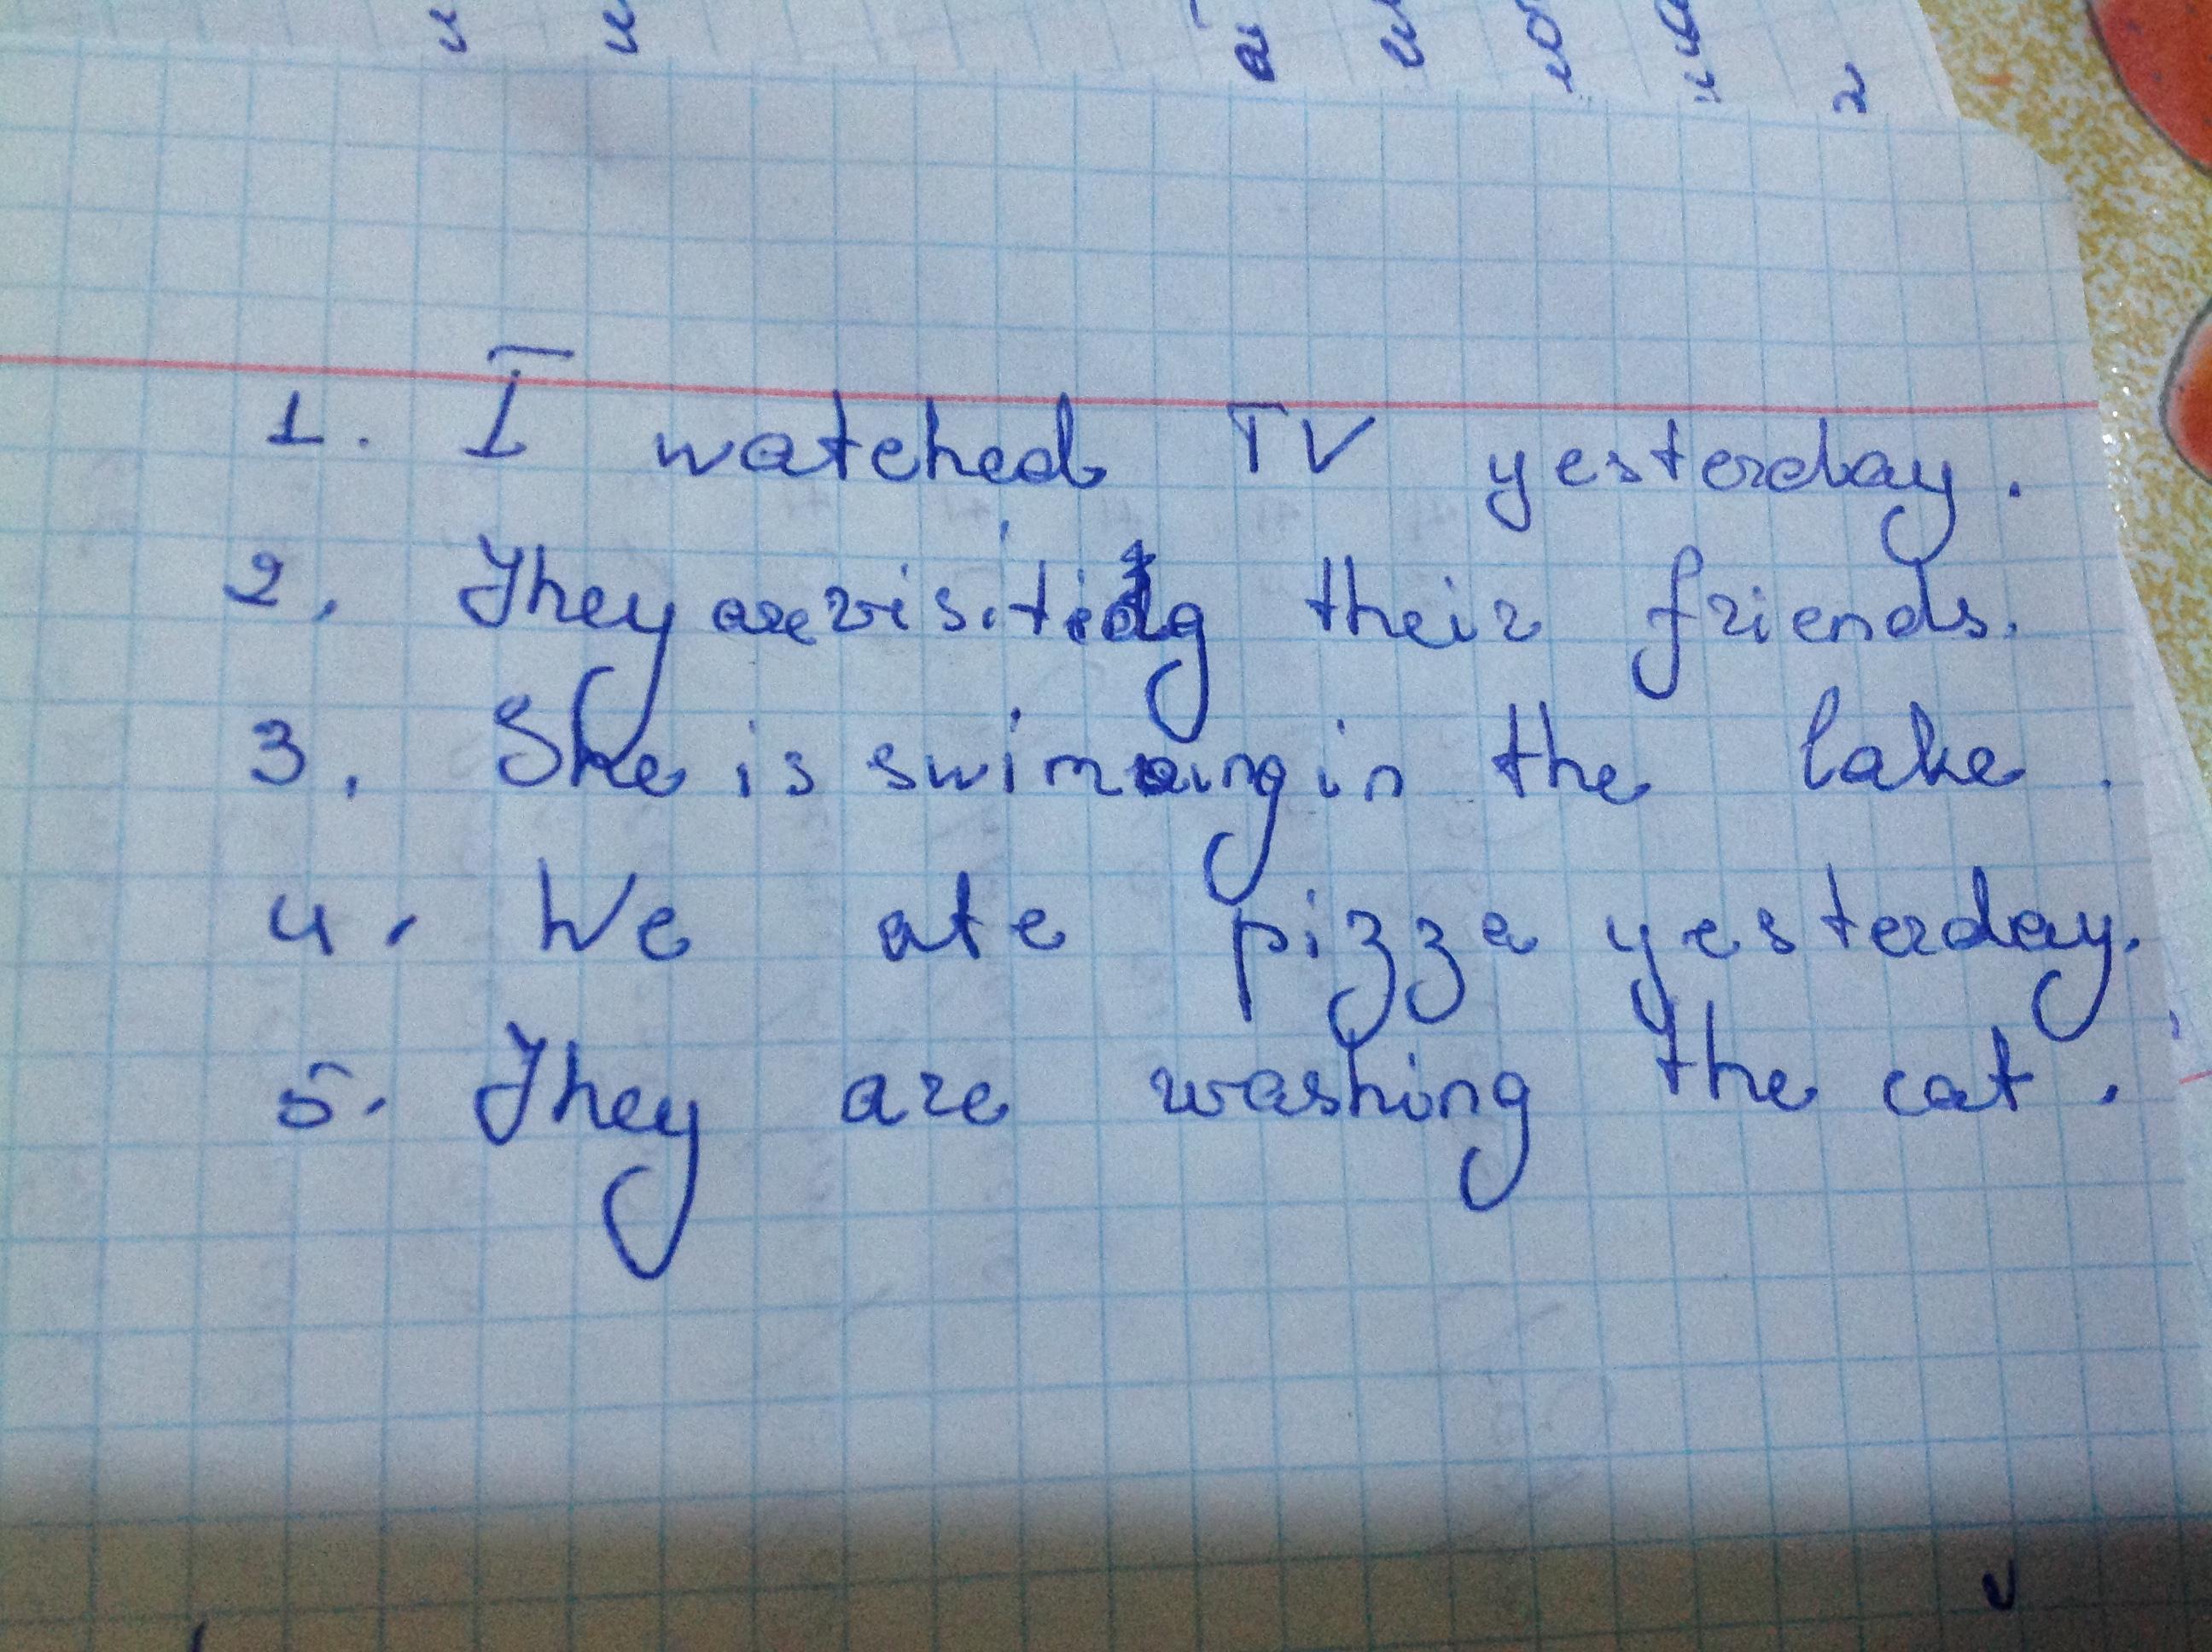 1. I watched TV yesterday.
2. They are visiting their friends.
3. She is swimming in the lake.
4. We ate pizza yesterday.
5. They are washing the cat.